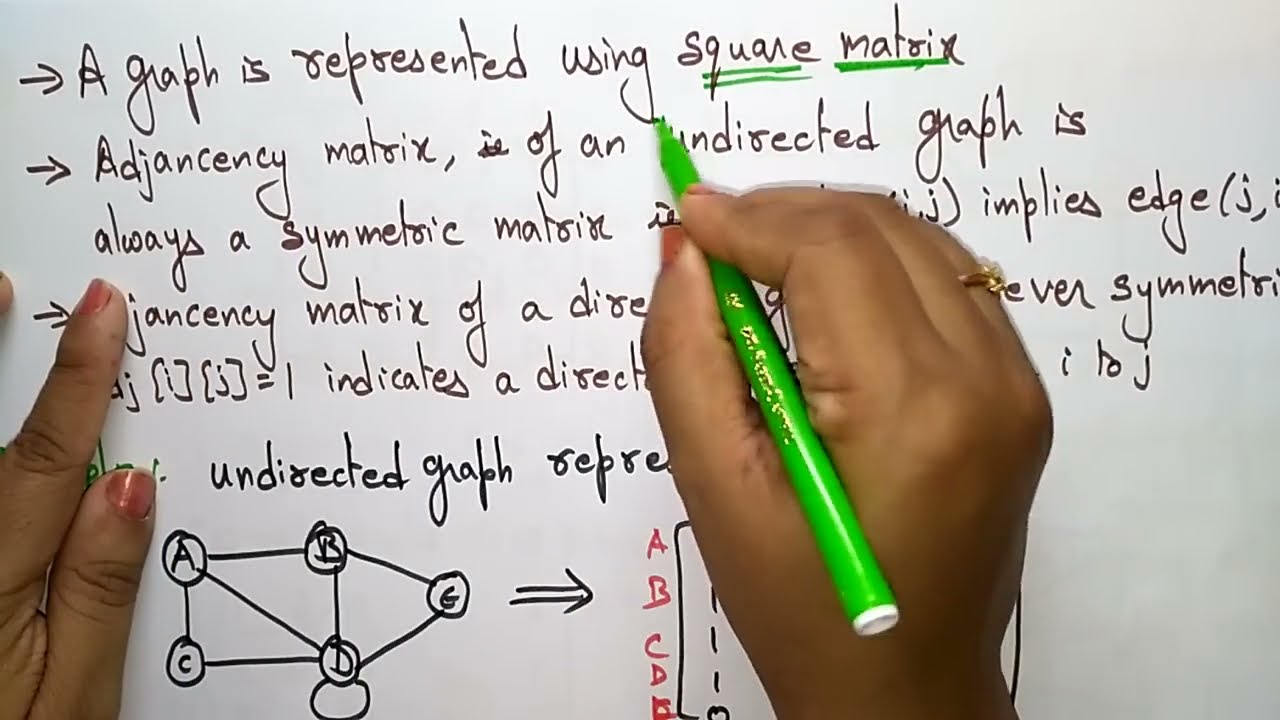 → A graph is represented using square matrix
→ Adjancency matrix, of an undirected graph is
always a symmetric matrix i,j) implies edge(j,i
→ jancency matrix of a dire ever symmetri
j[i][j]=1 indicates a direct i to j
undirected graph repre
A B E
C D
A
B 1
C 1
D 1
E 0